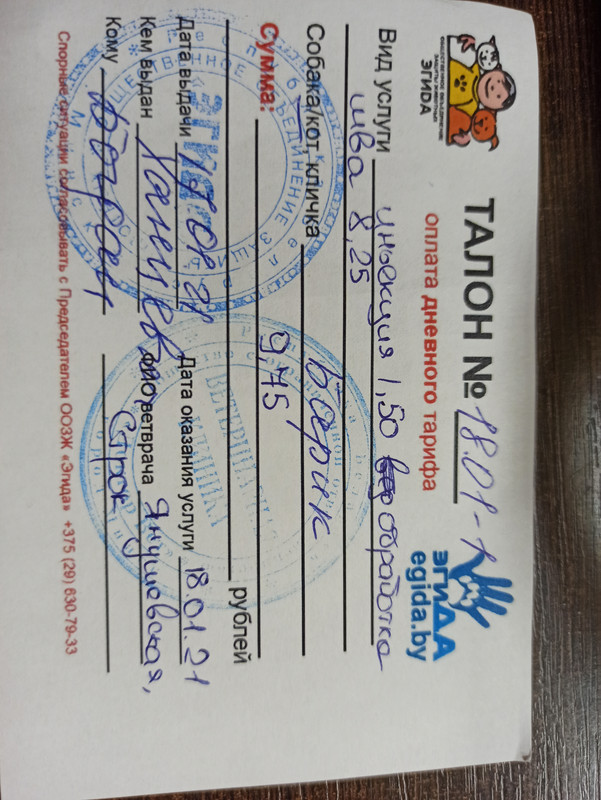 ОБЩЕСТВЕННОЕ ОБЪЕДИНЕНИЕ
ЗАЩИТЫ ЖИВОТНЫХ
ЭГИДА
ТАЛОН № 18.01-1
оплата дневного тарифа
ЭГИДА
egida.by
Вид услуги инъекция 1,50 обработка
шва 8,25
Собака/кот, кличка Барик
Сумма: 9,75 рублей
Дата выдачи
Дата оказания услуги 18.01.21
Кем выдан
ФИО ветврача Янушевская,
Строк
Кому
Спорные ситуации согласовывать с Председателем ООЗЖ «Эгида» +375 (29) 630-79-33